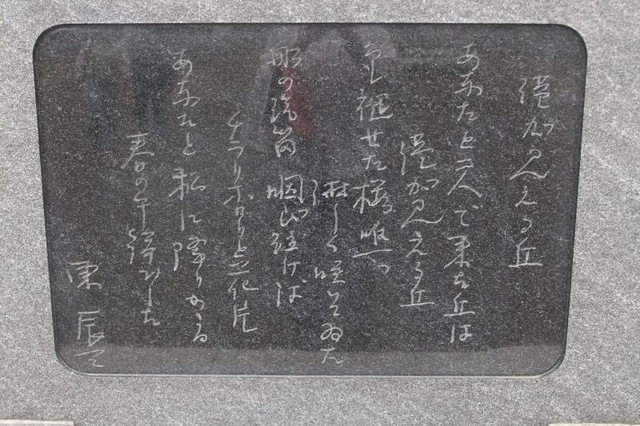 港が見える丘
あなたと二人で来た丘は
港が見える丘
色褪せた桜唯一つ
淋しく咲いてゐた
船の汽笛咽び泣けば
チラリホラリと花片
あなたと私に降りかゝる
春の午後でした
東 辰三